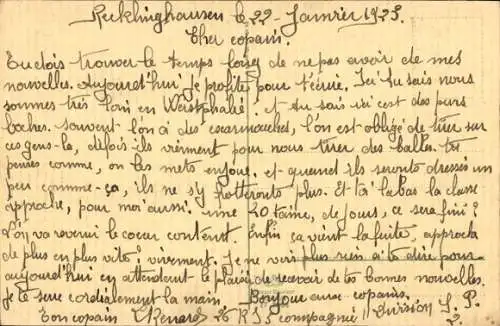 Recklinghausen le 22 - Janvier 1925.
Cher copain.
Tu dois trouver le temps long de ne pas avoir de mes
nouvelles. Aujourd'hui je profites pour t'écrire. Ici tu sais nous
sommes très loin en Westphalie. et tu sais ici c'est des purs
boches. souvent l'on a des escarmouches, l'on est obligé de tirer sur
ces gens-la, depuis ils viennent pour nous tirer des balles. tu
penses comme, on les mets en joue. et quand ils seront dressés un
peu comme-ça, ils ne s'y frotteront plus. Et toi labas la classe
approche, pour moi aussi. une 20taine, de jours, ce sera fini?
L'on va revenir le coeur content. Enfin ça vient la fuite, approche
de plus en plus vite? vivement. Je ne vois plus rien a te dire pour
aujourd'hui en attendant le plaisir de recevoir de tes bonnes nouvelles.
Je te serre cordialement la main. Bonjour aux copains.
Ton copain Renard 26 compagnie Division S. P.
2